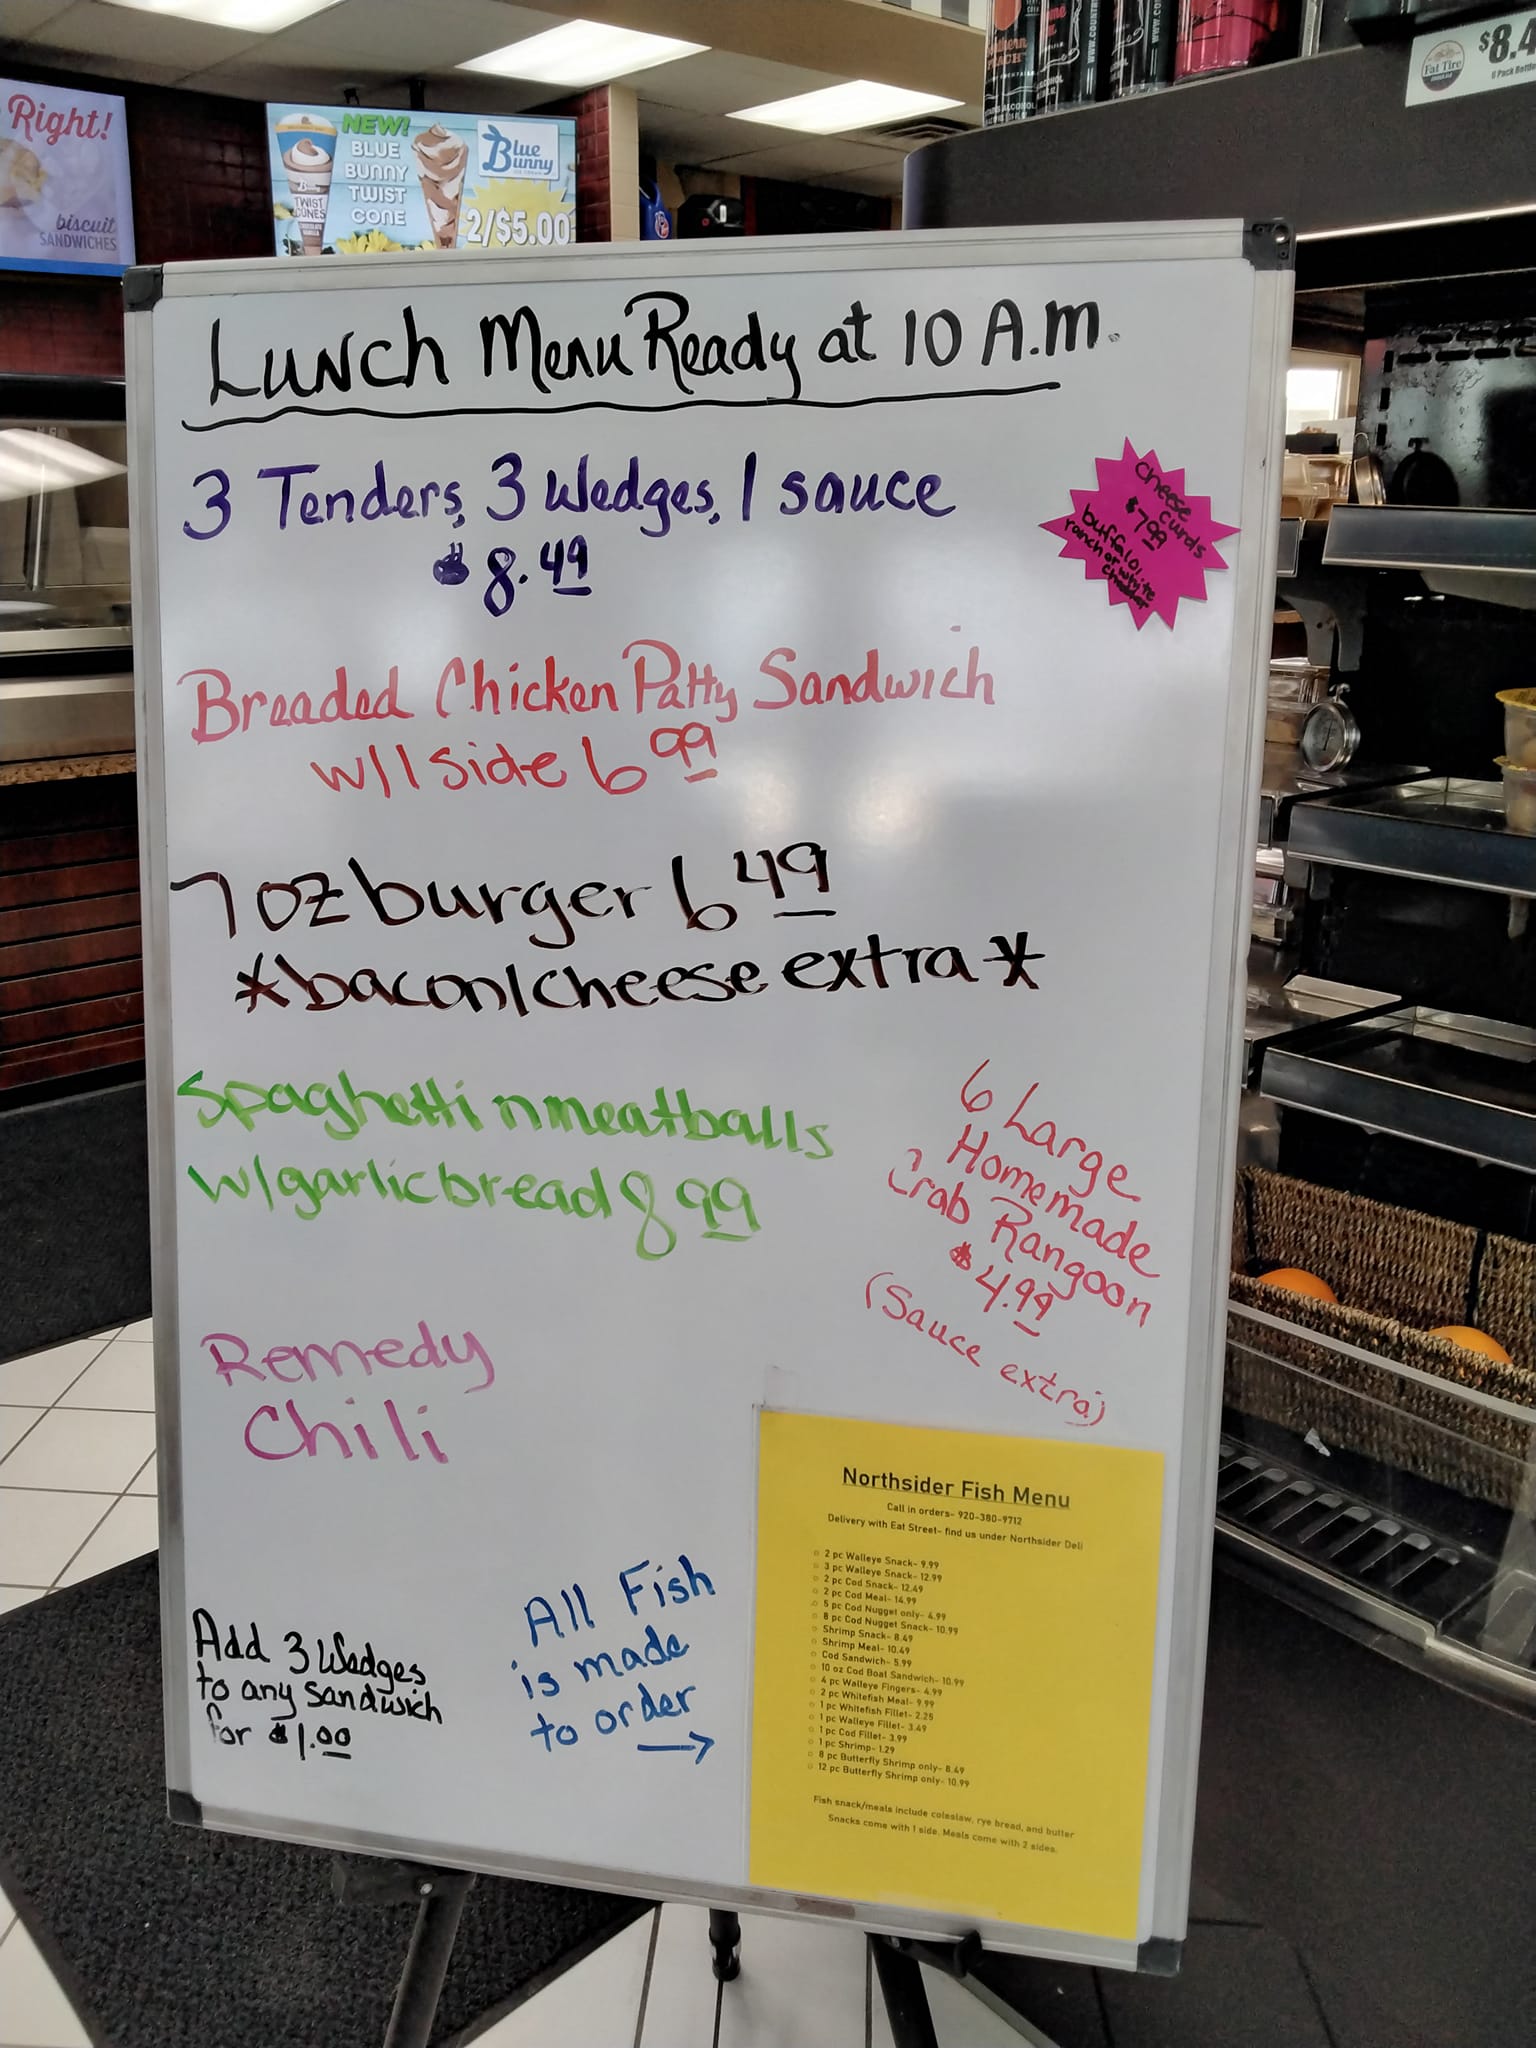 Right!
biscuit
SANDWICHES
NEW!
BLUE
BUNNY
TWIST
CONE
TWIST
CONES
Blue
Bunny
2/$5.00
WWW.COUNT
Fat Tire
$8.4
6 Pack Bottle
Lunch Menu Ready at 10 A.M.
3 Tenders, 3 Wedges, 1 sauce
$8.49
Cheese
curds
$7.99
buffalo,
ranch or white
cheddar
Breaded Chicken Patty Sandwich
w/1 side 6 99
7 oz burger 6 49
*bacon/cheese extra*
Spaghetti n meatballs
w/garlic bread 8 99
6 Large
Homemade
Crab Rangoon
$4.99
(Sauce extra)
Remedy
Chili
Add 3 Wedges
to any sandwich
for $1.00
All Fish
is made
to order
Northsider Fish Menu
Call in orders- 920-380-9712
Delivery with Eat Street- find us under Northsider Deli
2 pc Walleye Snack- 9.99
3 pc Walleye Snack- 12.99
2 pc Cod Snack- 12.49
2 pc Cod Meal- 14.99
5 pc Cod Nugget only- 4.99
8 pc Cod Nugget Snack- 10.99
Shrimp Snack- 8.49
Shrimp Meal- 10.49
Cod Sandwich- 5.99
10 oz Cod Boat Sandwich- 10.99
4 pc Walleye Fingers- 4.99
2 pc Whitefish Meal- 9.99
1 pc Whitefish Fillet- 2.25
1 pc Walleye Fillet- 3.49
1 pc Cod Fillet- 3.99
1 pc Shrimp- 1.29
8 pc Butterfly Shrimp only- 8.49
12 pc Butterfly Shrimp only- 10.99
Fish snack/meals include coleslaw, rye bread, and butter
Snacks come with 1 side. Meals come with 2 sides.